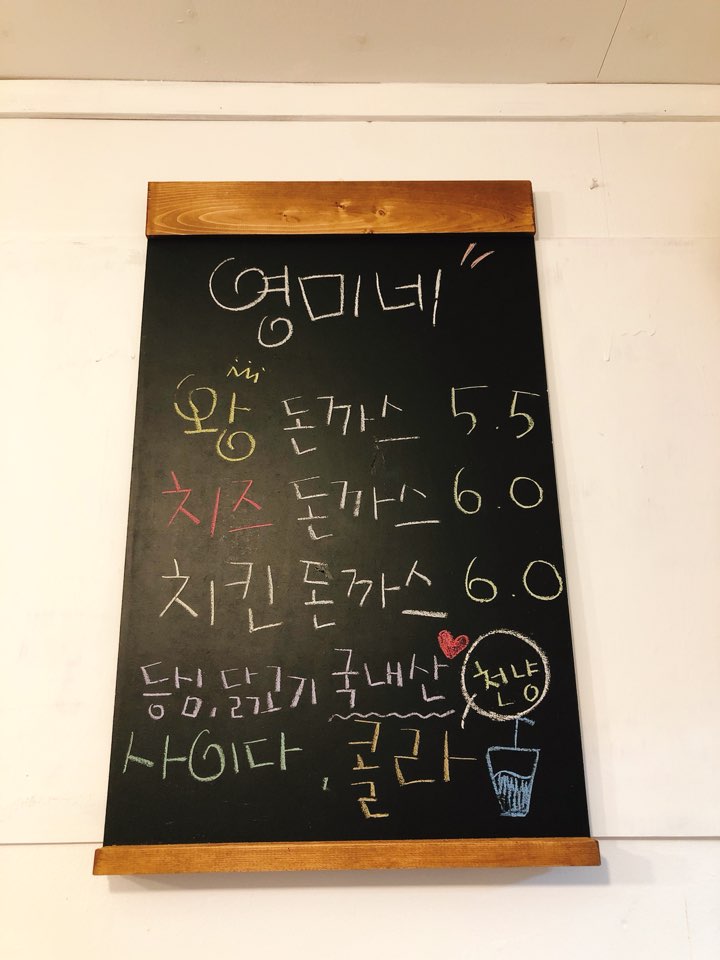 영미네
왕 돈까스 5.5
치즈 돈까스 6.0
치킨 돈까스 6.0
등심, 닭고기 국내산
천냥
사이다, 콜라